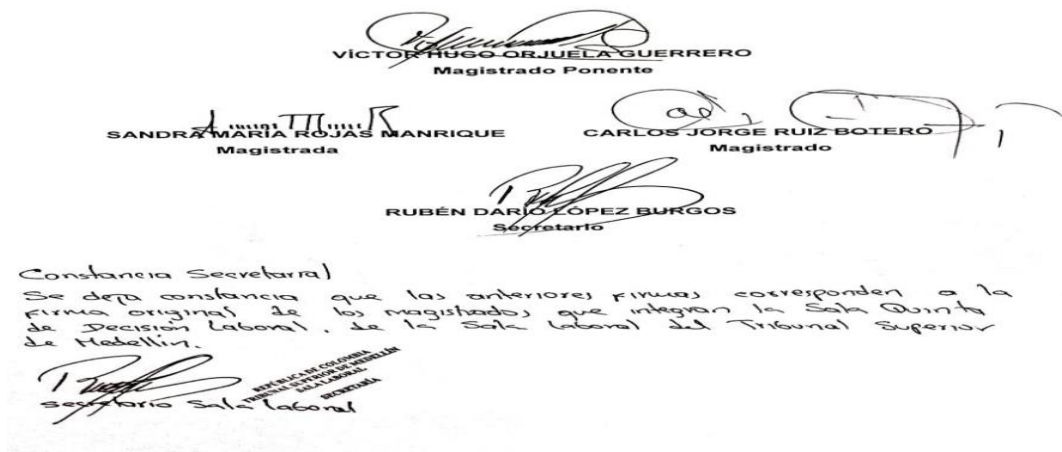 VÍCTOR HUGO ORJUELA GUERRERO
Magistrado Ponente
SANDRA MARÍA ROJAS MANRIQUE
CARLOS JORGE RUIZ BOTERO
Magistrada
Magistrado
RUBÉN DARÍO LÓPEZ BURGOS
Secretario
Constancia Secretarial
Se deja constancia que las anteriores firmas corresponden a la
firma original de los magistrados que integran la Sala Quinta
de Decisión Laboral, de la Sala Laboral del Tribunal Superior
de Medellín.
REPÚBLICA DE COLOMBIA
TRIBUNAL SUPERIOR DE MEDELLÍN
SALA LABORAL
SECRETARÍA
secretario Sala Laboral